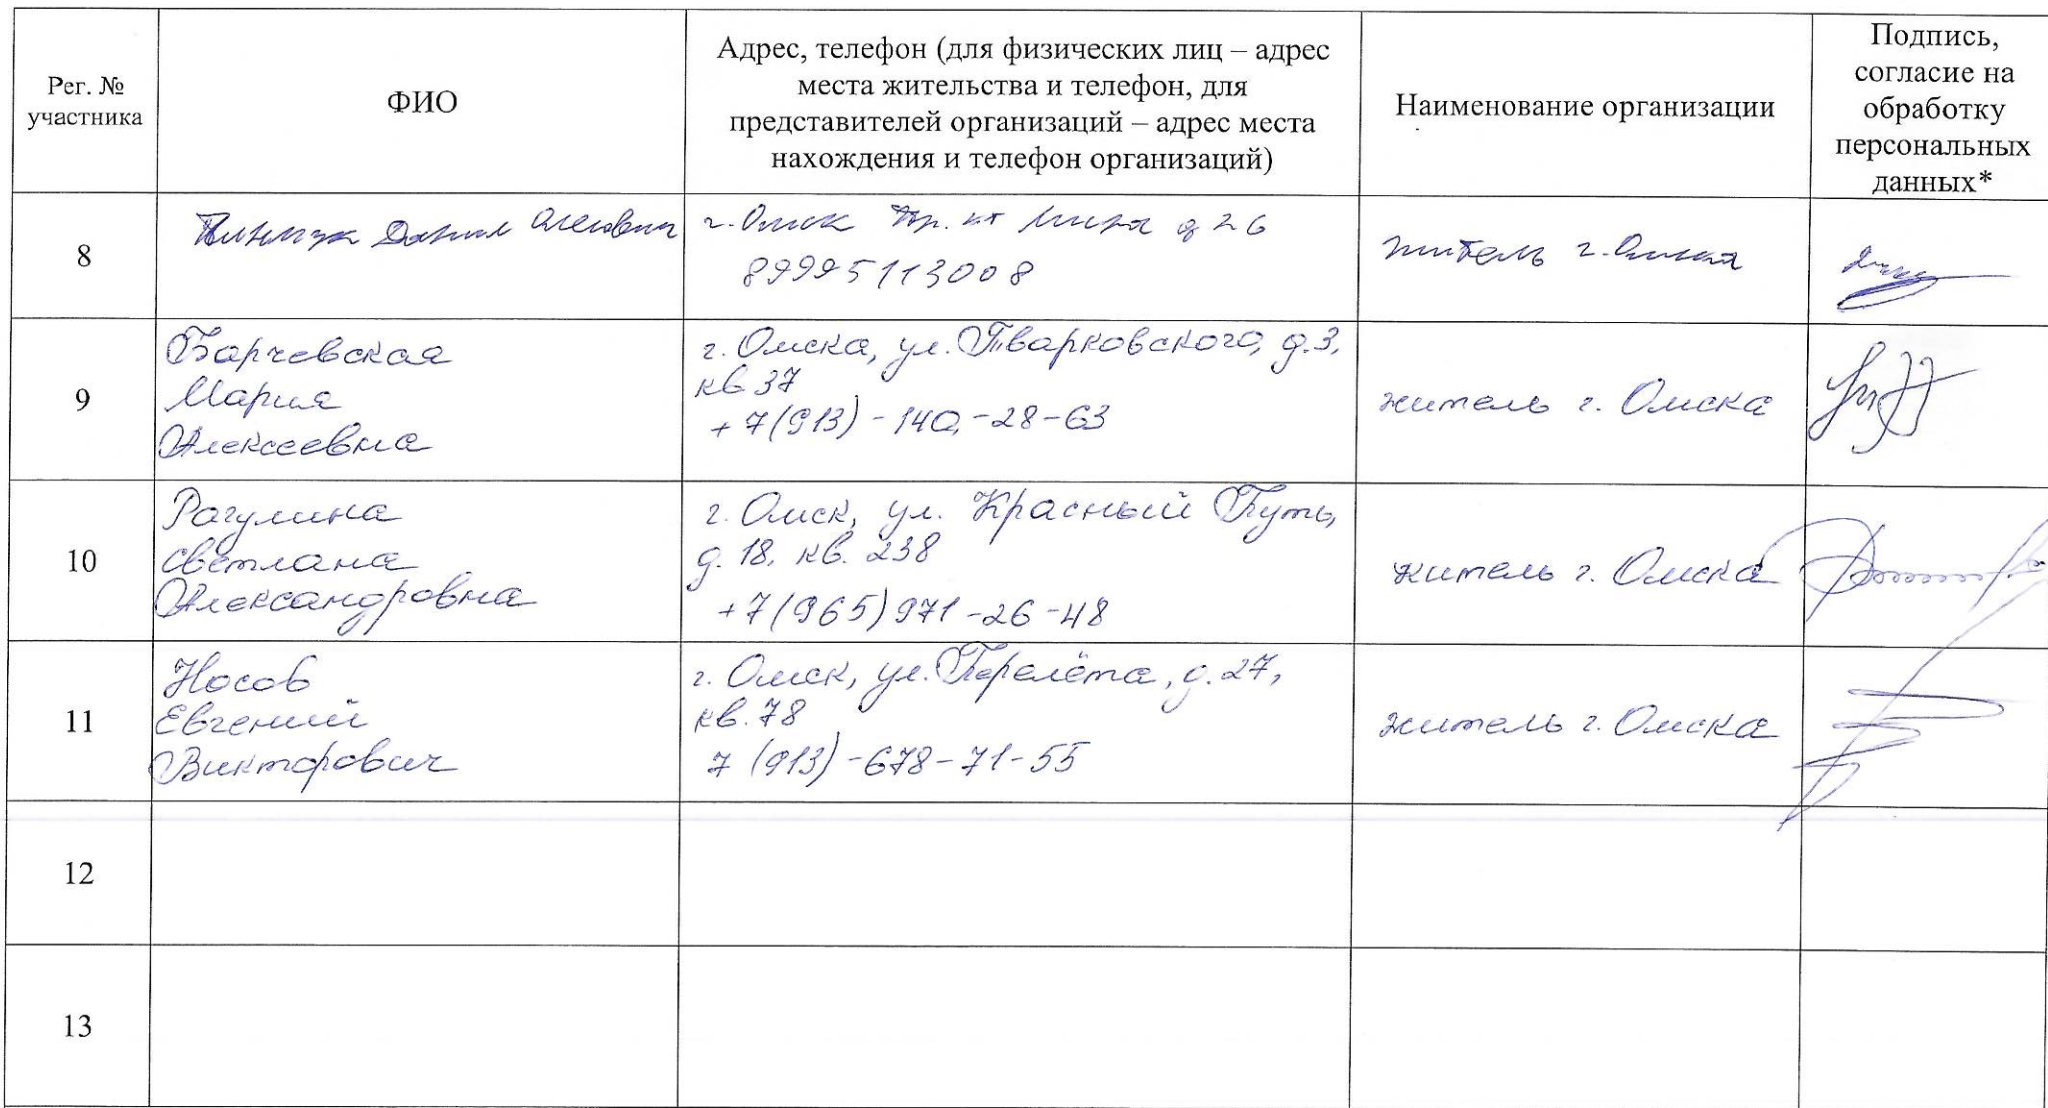 Рег. №
участника
ФИО
Адрес, телефон (для физических лиц – адрес
места жительства и телефон, для
представителей организаций – адрес места
нахождения и телефон организаций)
Наименование организации
Подпись,
согласие на
обработку
персональных
данных*
8
Данил Олегович
г. Омск пр. кт Мира д 26
89995113008
житель г. Омска
9
Барчевская
Мария
Алексеевна
г. Омска, ул. Тварковского, д.3,
кв 37
+7(913)-140-28-63
житель г. Омска
10
Рагулина
Светлана
Александровна
г. Омск, ул. Красный Путь,
д. 18, кв. 238
+7(965)971-26-48
житель г. Омска
11
Носов
Евгений
Викторович
г. Омск, ул. Перелёта, д. 27,
кв. 78
7 (913)-678-71-55
житель г. Омска
12
13